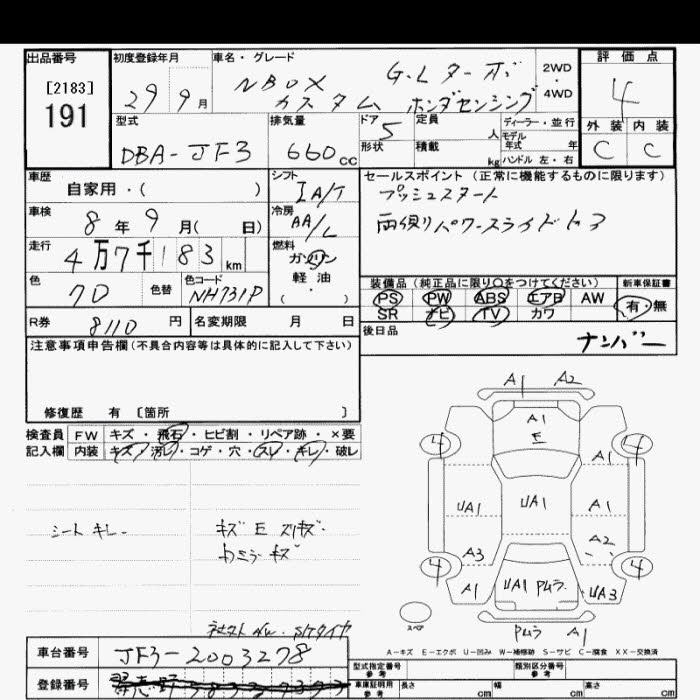 出品番号 初度登録年月 車名・グレード 評価点
[2183] 191
29年 9月
NBOX G・Lターボ 2WD・4WD
カスタム ホンダセンシング
4
型式 排気量 ドア 定員 ディーラー・並行
DBA-JF3 660cc 5 人 モデル年式 年
形状 積載 kg ハンドル 左・右
外装 内装
C C
車歴 シフト セールスポイント(正常に機能するものに限ります)
自家用・( ) IA/T プッシュスタート
車検 冷房 両側パワースライドドア
8年9月( 日) AA/L
走行 燃料
4万7千183km ガソリン
軽油
( ・ )
色 色替 色コード 装備品(純正品に限り○をつけてください) 新車保証書
クロ NH731P PS PW ABS エアB AW 有・無
SR ナビ TV カワ
R券 8110円 名変期限 月 日 後日品
ナンバー
注意事項申告欄(不具合内容等は具体的に記入して下さい)
修復歴 有 〔箇所 〕
検査員 FW キズ・飛石・ヒビ割・リペア跡・×要
記入欄 内装 キズ・汚レ・コゲ・穴・スレ・キレ・破レ
シートキレ
キズ E スリキズ
A1 A2
A1
E
4 4
UA1 UA1 A1
A2
A3
4 4
A1 UA1 Pムラ UA3
スペア
Pムラ A1
A-キズ E-エクボ U-凹み W-補修跡 S-サビ C-腐食 XX-交換済
車台番号 JF3-2003278
型式指定番号 参考 類別区分番号 参考
登録番号
車庫証明用 参考 長さ cm 幅 cm 高さ cm